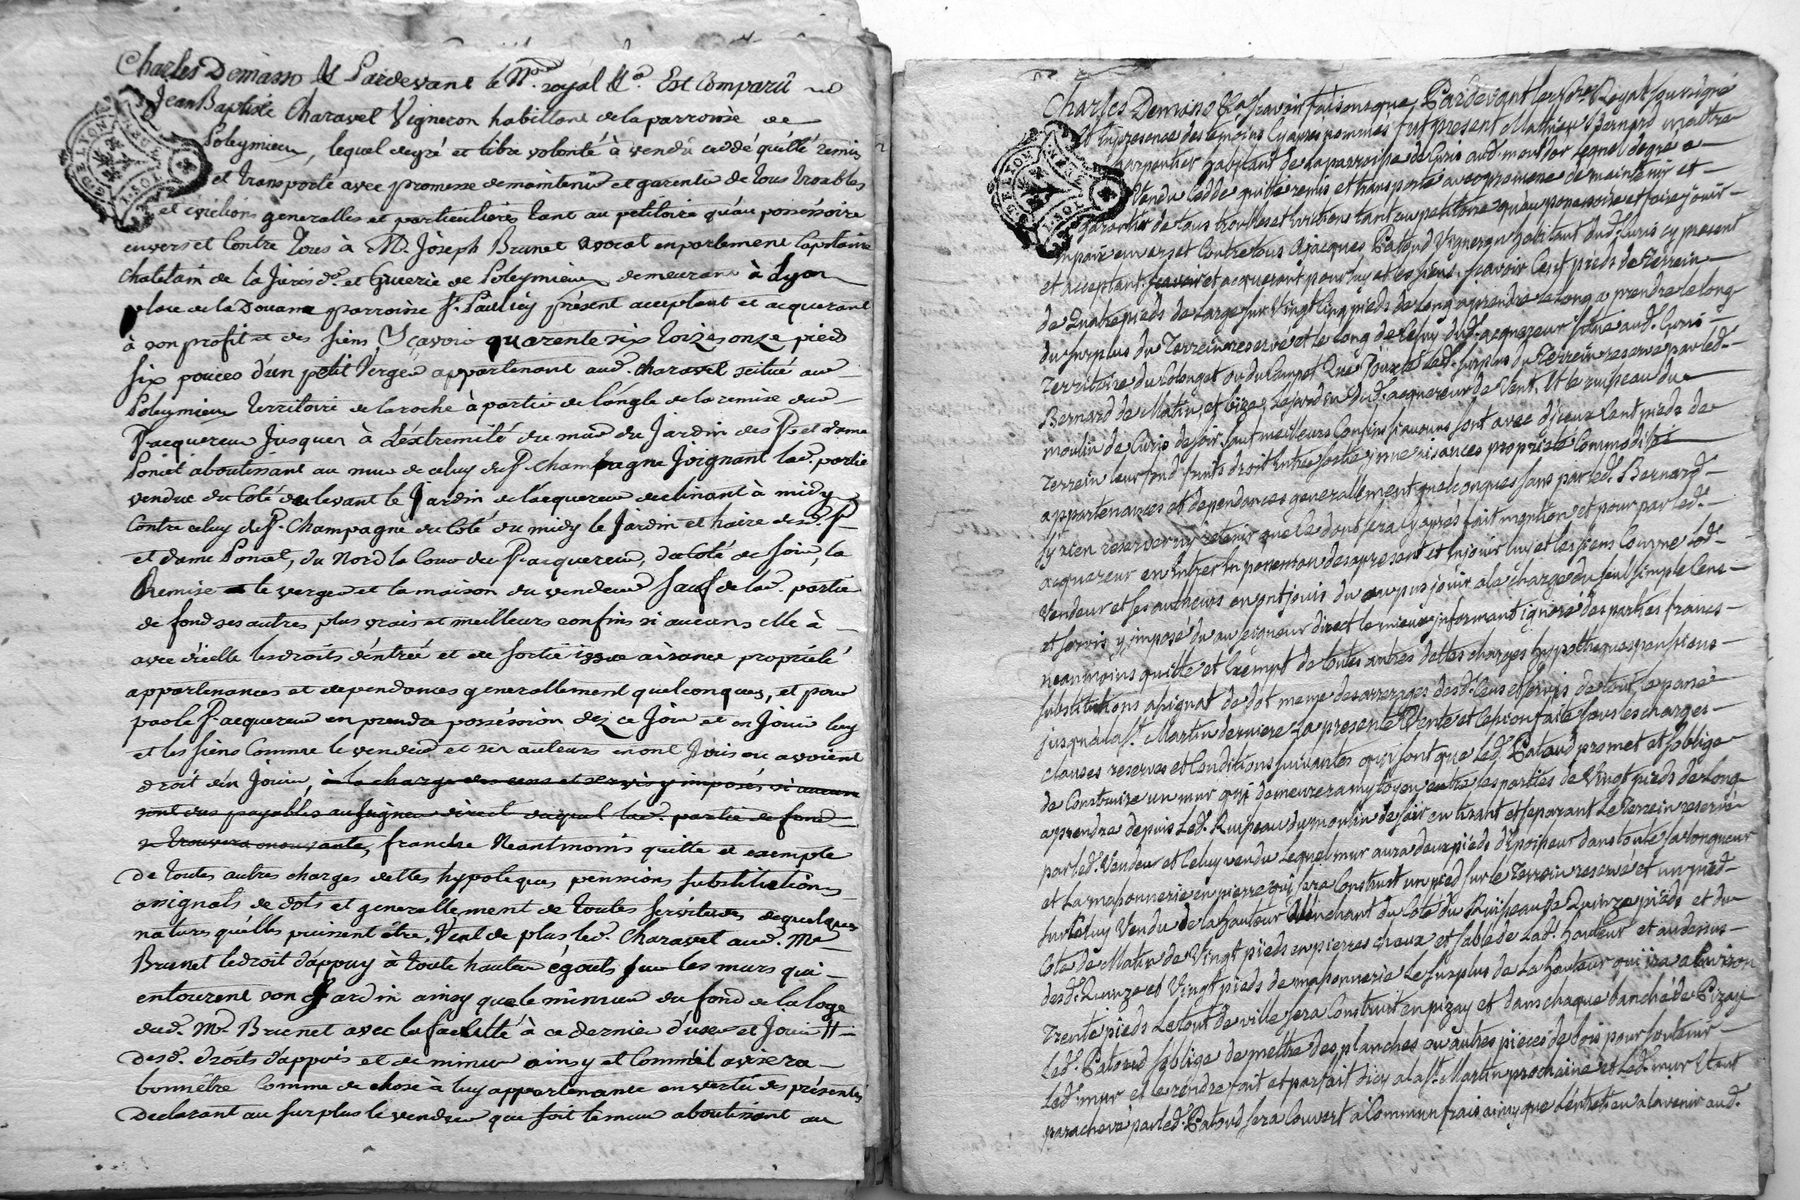 Charles Demasso &c Pardevant le No.re royal &a. Est Comparû
Jean Baptiste Charavel Vigneron habittant de la parroisse de
Poleymieu, lequel degré et libre volonté à vendû cedde quitté remis
et transporté avec promesse de maintenir et garentir de tous troubles
et evictions generalles et particulieres tant au petitoire qu'au poséssoire
envers et Contre Tous à Mr. Joseph Brunet avocat en parlement Capitaine
chatelain de la Jurisd.on et de Poleymieu demeurant à Lyon
place de la Douane parroisse St. Paul icy présent acceptant et acquerant
à son profit et des siens, Sçavoir quarente six toizes onze pied
six pouces d'un petit Verger appartenant aud. Charavel scitué au
Poleymieu territoire de la roche à partir de l'angle de la remise du
Sr. acquereur Jusques à L'éxtremité du mur du Jardin des Sr. et dame
Poncet aboutissant au mur de celuy du Sr. Champagne Joignant lad. partie
vendue du Coté du levant le Jardin de l'acquereur declinant à midy
Contre celuy du Sr. Champagne du Coté du midy le Jardin et haire desd. Sr.
et dame Poncet, du Nord la Cour du Sr. acquereur, du Coté de soir, la
Remise le verger et la maison du vendeur sauf de lad. partie
de fond ses autres plus vrais et meilleurs confins si aucuns elle à
avec d'icelle les droits d'éntrée et de sortie issue aisance propriété
appartenances et dependances generallement quelconques, et pour
par le Sr. acquereur en prendre poséssion dez ce Jour et en Jouir luy
et les siens Comme le vendeur et ses auteurs en ont Joüis ou avoient
droit d'en Jouir, à la charge des cens et servis y imposés si aucun
sont dus payables au seigneur direct duquel lad. partie de fond
se trouvera mouvante, franche Neantmoins quitte et exempte
De toutes autres charges dettes hypoteques pensions substitutions
assignats de dots et generallement de toutes servitudes de quelques
natures qu'élles puissent être, Vend de plus led. Charavel aud. Me.
Brunet le droit d'appuy à toute hauteur égouts sur les murs qui
entourent son Jardin ainsy que le minseur du fond de la loge
dud. Mr. Brunet avec la faculté à ce dernier d'user et Jouir
Desd. droits d'appuis et de ainsy et Comm'il avisera
bon n'être Comme de chose à luy appartenante en vertu des présentes
Declarant au surplus le vendeur que soit le mur aboutissant au
Charles Demasso &a Scavoir faisons que Pardevant les No.res Royal soussigné
Et en presence des temoins Cy apres nommés fut present Mathieu Bernard maitre
Charpentier habitant de la paroisse de Curis aud. mond'or lequel de gré a
Vendu Cedde quitte remis et transporté avec promesse de maintenir et
garantir de tous troubles et evictions tant au petitoire qu'au possessoire et faire jouir
en paix envers et Contre tous a Jacques Patoud Vigneron habitant dud. Curis cy present
et acceptant et acquerant pour luy et les siens, scavoir Cent pieds de Terrein
de Quatre pieds de large sur Vingt Cinq pieds de long a prendre le long
du surplus du Terrein reservé et le long de Celuy dud. acquereur situé aud. Curis
Territoire du ou du Led. surplus du Terrein reservé par led.
Bernard de Matin, et bize, Le Jardin dud. acquereur de Vent, Et le ruisseau du
moulin de Curis de soir, sauf meilleurs Confins si aucuns sont avec d'iceux Cent pieds de
Terrein leur fond fruits droit entrée sortie aisances propriété Commodités
appartenances et dependances generallement quelconques sans par led. Bernard
s'y rien reserver ny retenir que Ce dont sera Cy aprés fait mention et pour par led.
acquereur en Entrer en possession des a present Et en jouir luy et les siens Comme led.
Vendeur et ses autheurs en ont jouis du ou pus jouir a la charge du seul simple Cens
et servis y imposé du au seigneur direct le mieux informant ignoré des parties francs
neanmoins quitte et Exempt de toutes autres dettes charges hypotheques pensions
substitutions assignat de dot meme des arrerages desd. Cens et servis de tout le passé
jusqu'a la St. Martin derniere La presente Vente et Cession faite sous les charges
clauses reserves et Conditions suivantes qui sont que led. Patoud promet et s'oblige
de Construire un mur qui demeurera mytoyen entre les parties de Vingt pieds de long
a prendre depuis Led. Ruisseau du moulin de soir en tirant et separant Le Terrein reservé
par led. Vendeur et Celuy vendu Lequel mur aura deux pieds d'Epoisseur dans toute sa longueur
et La massonnerie en pierre qui sera Construit un pied sur le Terrein reservé et un pied
sur Celuy Vendu de la hauteur du Coté du Ruisseau de Quinze pieds et du
Coté de Matin de Vingt pieds en pierres chaux et sable de Lad. hauteur et au dessus
desd. Quinze et Vingt pieds de massonnerie Le surplus de La hauteur qui ira a Environ
Trente pieds Le tout de ville sera Construit en pizay et dans chaque banché de Pizay
Led. Patoud s'oblige de mettre des planches ou autres pieces de bois pour soutenir
Led. mur et le rendre fait et parfait d'icy a la St. Martin prochaine et Led. mur Etant
parachevé par led. Patoud sera Couvert à Commun frais ainsy que L'entretien a lavenir aud.